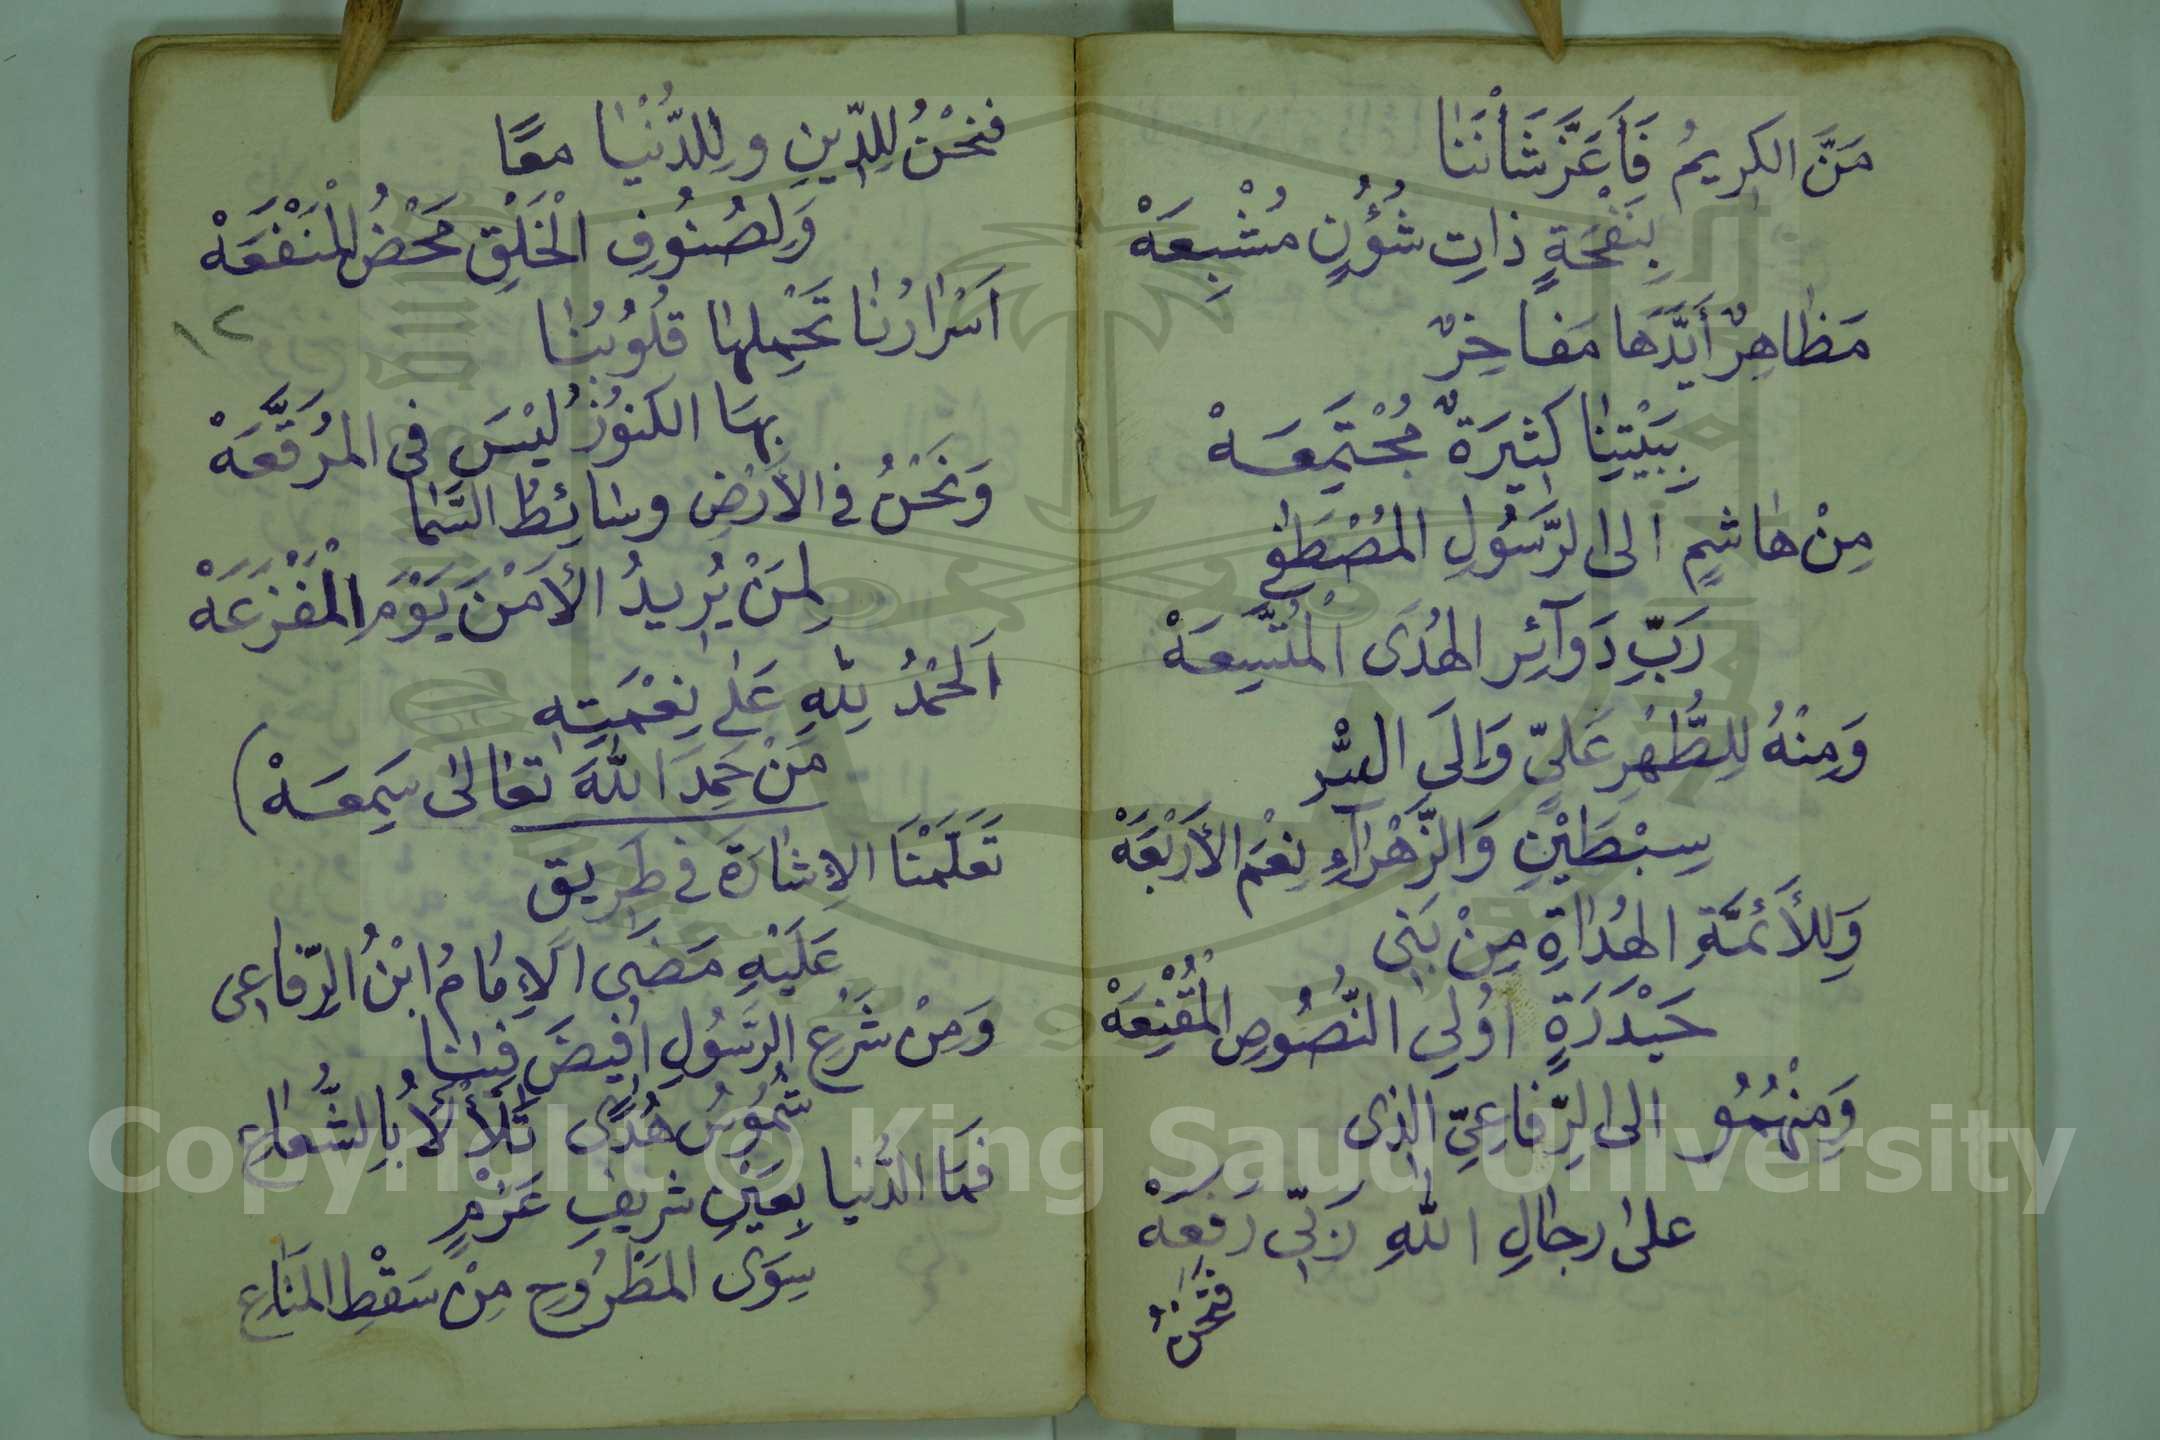 مَنَّ الكريمُ فَأَعَزَّ شَأْنَنَا
بِنَفْحَةٍ ذاتِ شُؤُنٍ مُشْبِعَهْ
مَظاهِرٌ أَيَّدَهَا مَفاخِرٌ
بِبَيْتِنِا كثيرَةٌ مُجْتَمِعَهْ
مِنْ هاشِمٍ الى الرَّسُولِ المُصْطَفٰى
رَبِّ دَوآئِرِ الهُدَى الْمُتَّسِعَهْ
وَمِنْهُ لِلطُّهْرِ عَليٍّ وَالَى السْ
سِبْطَيْنِ وَالزَّهْرآءِ نِعْمَ الأَرْبَعَهْ
وَلِلأَئمَّةِ الهُدَاةِ مِنْ بَنِى
حَيْدَرَةٍ اُولِي النُّصُوصِ الْمُقْنِعَهْ
وَمِنْهُمُو الى الرِّفاعِيِّ الذى
على رجالِ اللهِ رَبِّى رَفَعَهْ
فنَحْنُ
فنحْنُ لِلدِّينِ ولِلدُّنْيَا معًا
وَلِصُنُوفِ الْخَلْقِ مَحْضُ الْمَنْفَعَهْ
١٢
اَسْرارُنا تَحْمِلها قُلُوبُنا
بهَا الكنوُزُ لَيْسَ فى المُرَقَّعَهْ
وَنَحْنُ في الأَرْضِ وسَائِطُ السَّما
لِمَنْ يُريدُ الأَمْنَ يَوْمَ الْمَفْزَعَهْ
اَلحَمْدُ لِلّهِ عَلى نِعْمَتِهِ
مَنْ حَمِدَ اللهَ تعَالى سَمِعَهْ)
تَعَلَّمْنَا الاِشارَةَ في طَريق
عَلَيْهِ مَضَى الاِمامُ ابْنُ الرِّفاعِى
وَمِنْ شَرْعِ الرَّسُولِ اُفيضَ فينا
شُمُوُسُ هُدًى تَلَأْلَأُ بالشُّعاعِ
فمَا الدُّنيا بِعَيْنِ شريفِ عَزْمٍ
سِوَى المَطْرُوحِ مِنْ سَقْطِ المَتَاعِ
Copyright © King Saud University